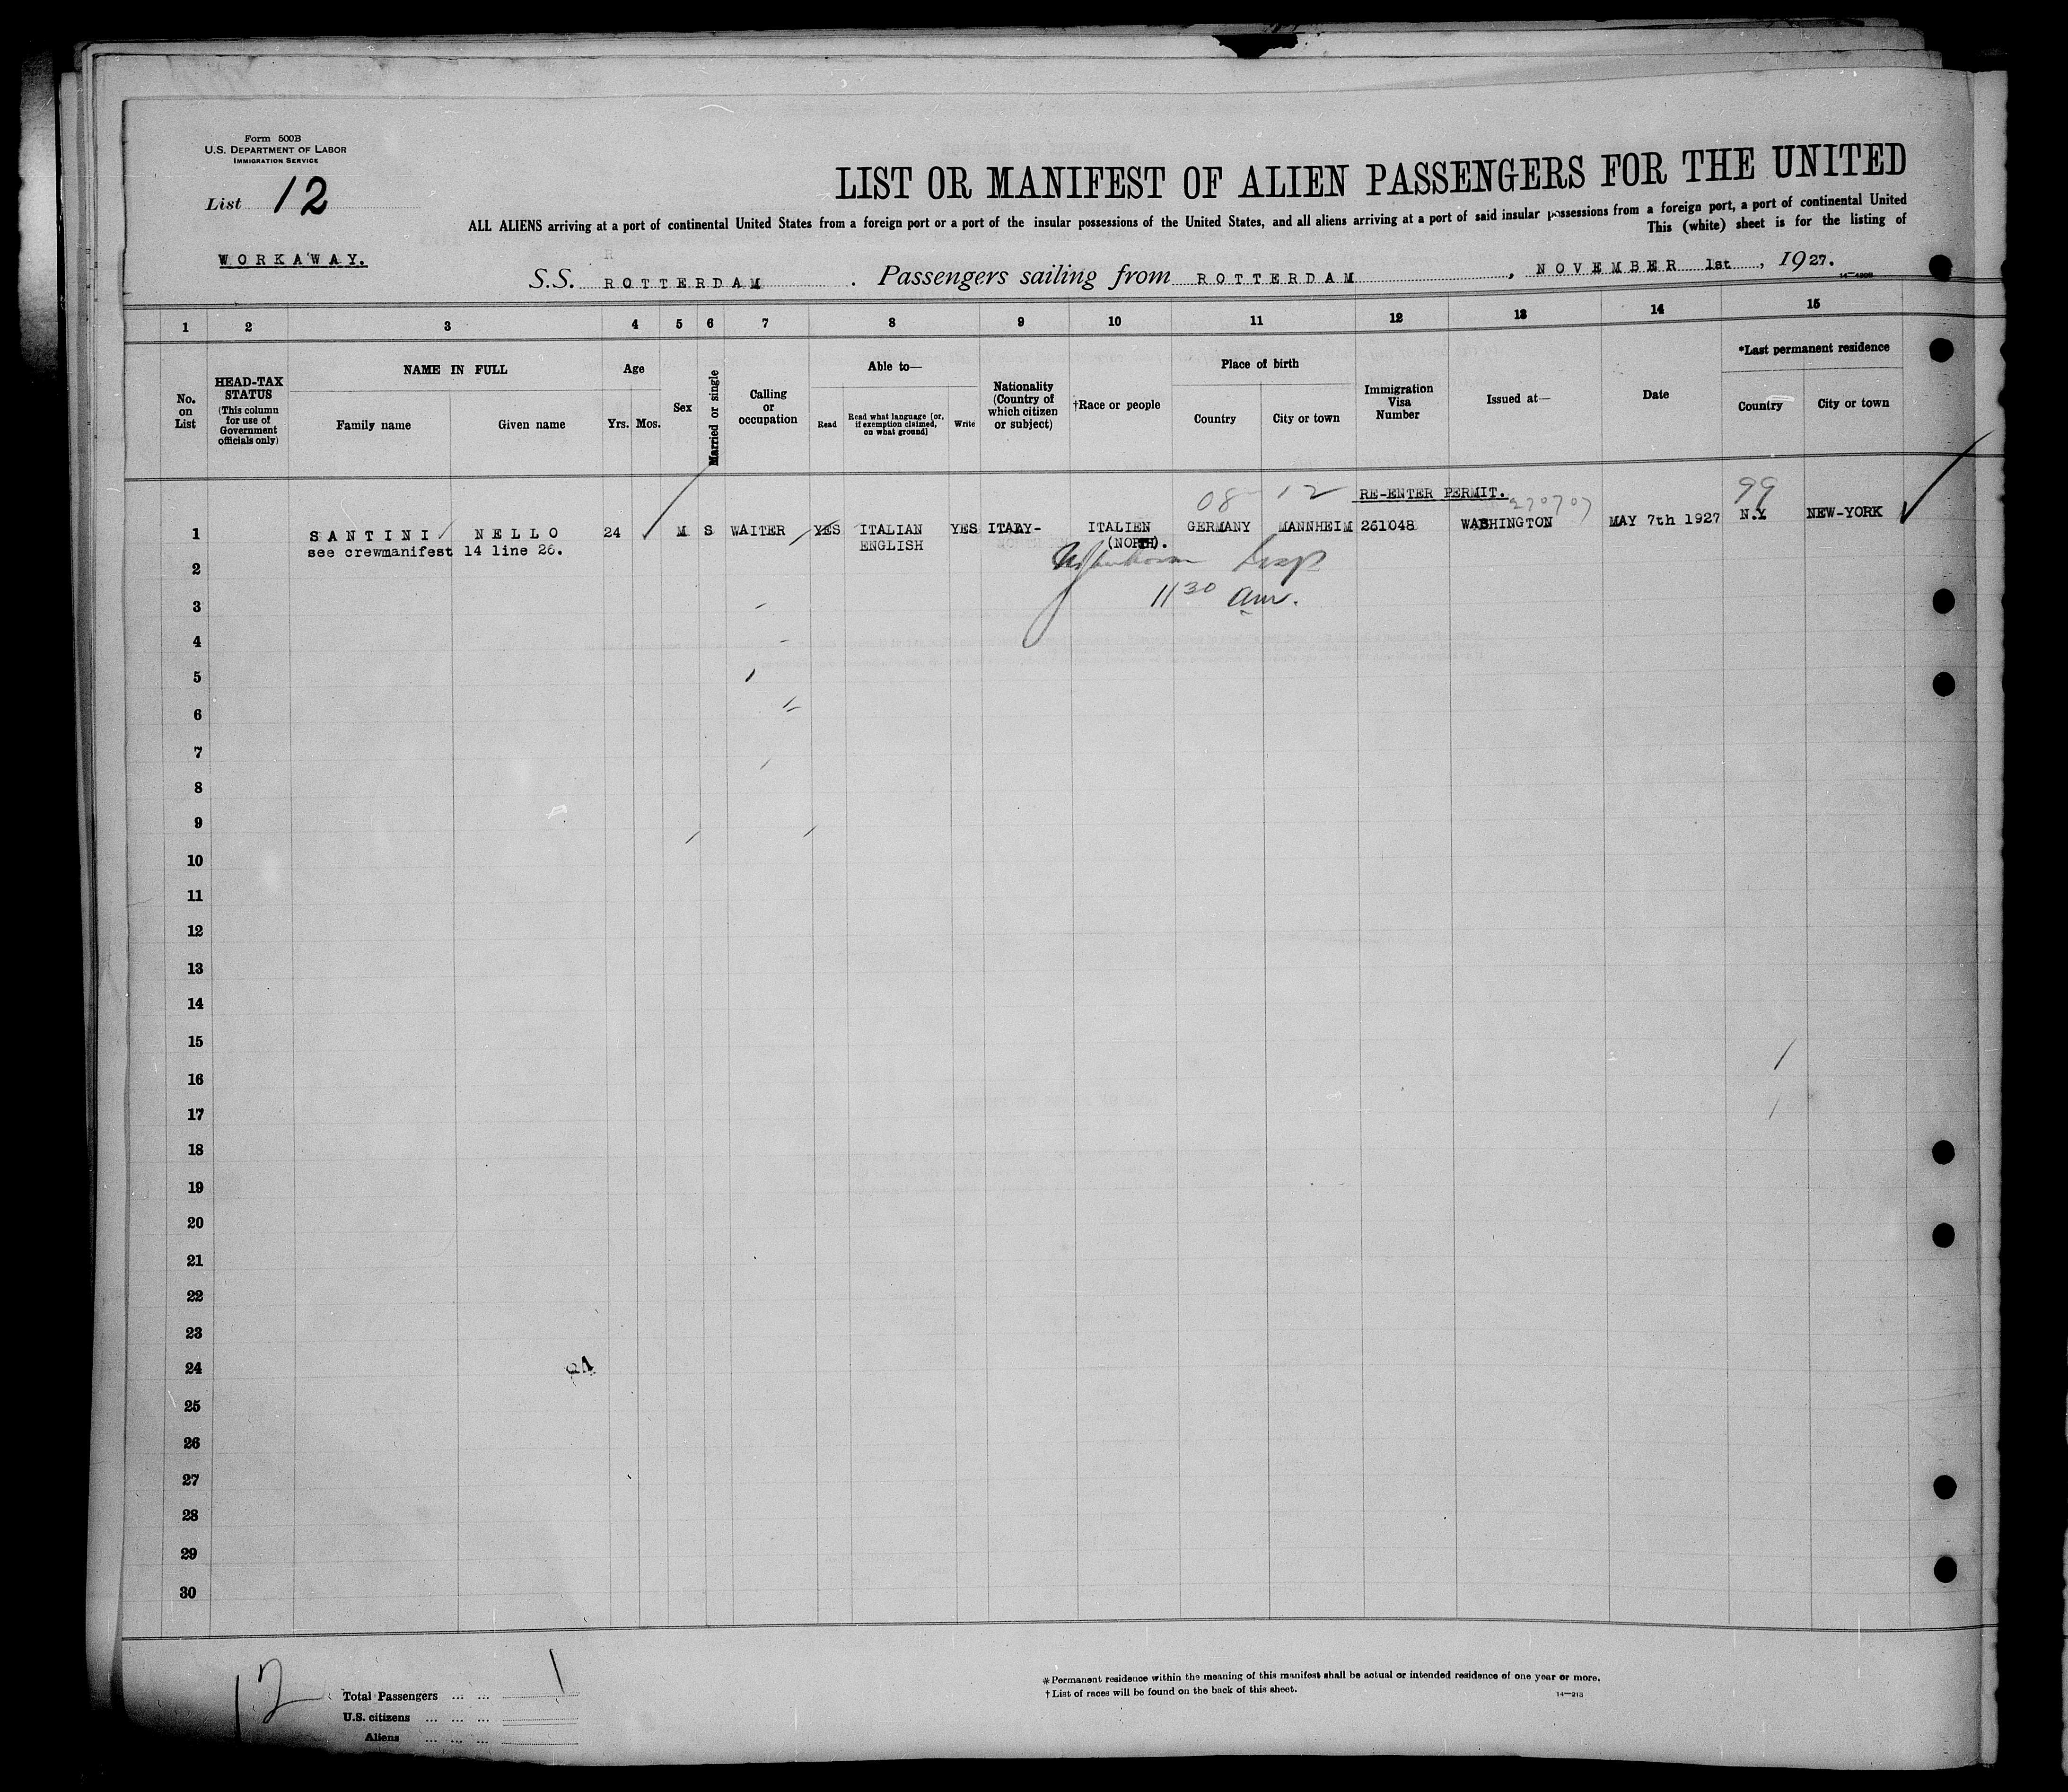 Form 500B
U.S. DEPARTMENT OF LABOR
IMMIGRATION SERVICE
List 12
WORKAWAY.
LIST OR MANIFEST OF ALIEN PASSENGERS FOR THE UNITED
ALL ALIENS arriving at a port of continental United States from a foreign port or a port of the insular possessions of the United States, and all aliens arriving at a port of said insular possessions from a foreign port, a port of continental United
This (white) sheet is for the listing of
S.S. ROTTERDAM. Passengers sailing from ROTTERDAM, NOVEMBER 1st, 1927.
1 2 3 4 5 6 7 8 9 10 11 12 13 14 15
No. on List
HEAD-TAX STATUS
(This column for use of Government officials only)
NAME IN FULL
Family name Given name
Age
Yrs. Mos.
Sex
Married or single
Calling or occupation
Able to—
Read
Read what language [or, if exemption claimed, on what ground]
Write
Nationality (Country of which citizen or subject)
†Race or people
Place of birth
Country City or town
Immigration Visa Number
Issued at—
Date
*Last permanent residence
Country City or town
08 12 RE-ENTER PERMIT. 99
1 SANTINI NELLO 24 M S WAITER YES ITALIAN YES ITALY- ITALIEN GERMANY MANNHEIM 261048 WASHINGTON MAY 7th 1927 N.Y NEW-YORK
see crewmanifest 14 line 26. ENGLISH (NORTH).
2
11 30 am.
3
4
5
6
7
8
9
10
11
12
13
14
15
16
17
18
19
20
21
22
23
24
25
26
27
28
29
30
12
Total Passengers ... ... 1
U.S. citizens ... ... ...
Aliens ... ... ...
* Permanent residence within the meaning of this manifest shall be actual or intended residence of one year or more.
† List of races will be found on the back of this sheet.
14—213